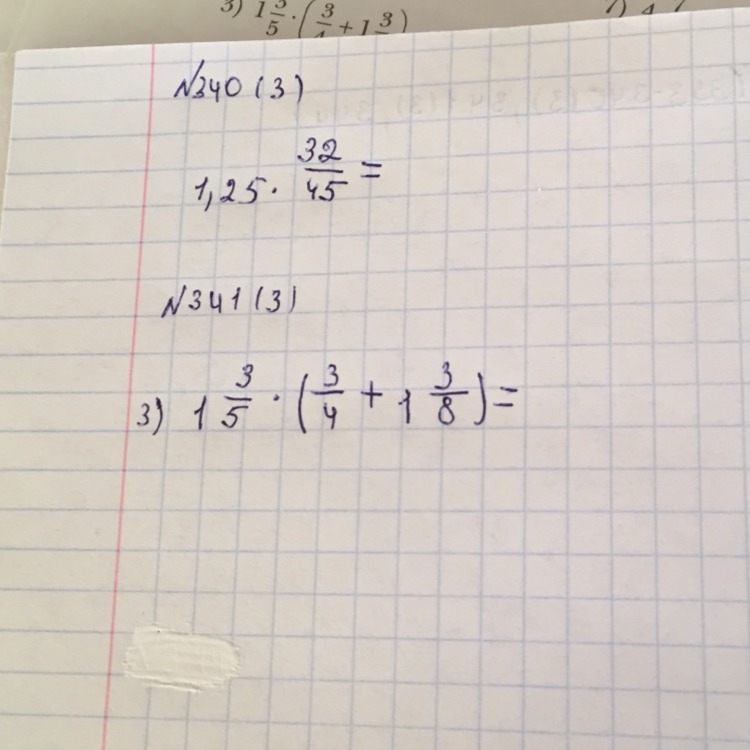 3) 1 3/5 · (3/4 + 1 3
№340 (3)
1,25 · 32/45 =
№341 (3)
3) 1 3/5 · (3/4 + 1 3/8) =